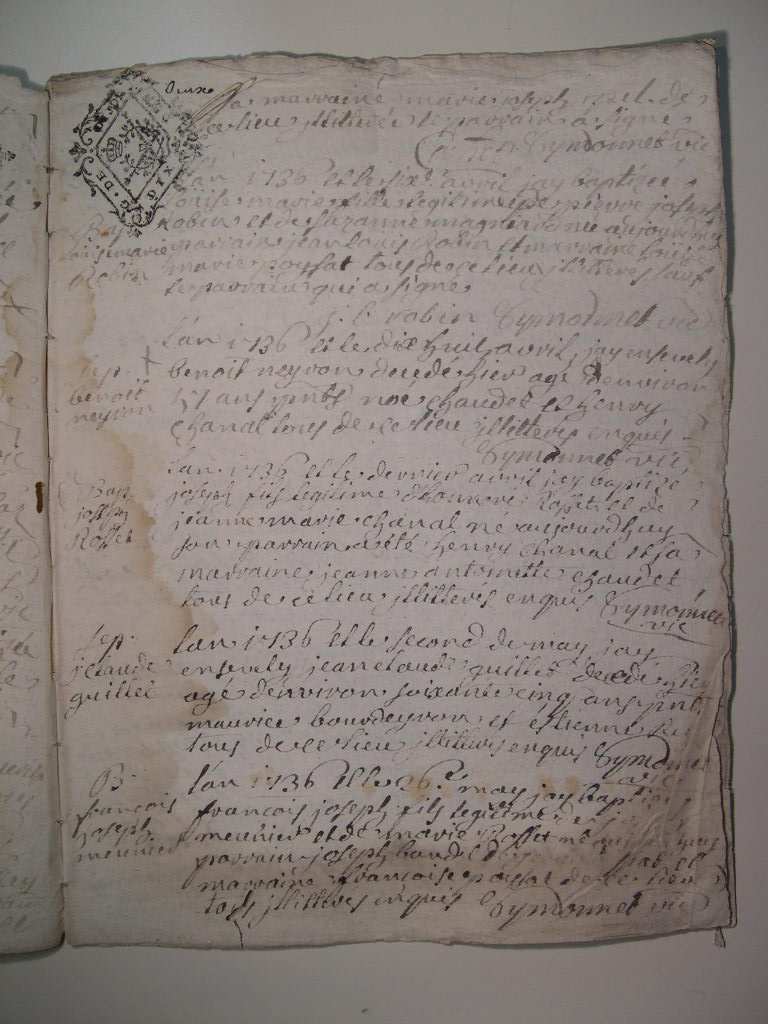 Deux
sa marraine marie joseph de
ce lieu illiterée le parrain a signé
Eymonnet vic
Bap.
louise marie
Robin
L'an 1736 et le six.e avril jay baptizée
louise marie fille legitime de pierre joseph
Robin et de suzanne magnin née aujourd'huy
parrain jean louis Robin et marraine louise
marie possat tous de ce lieu illiteres sauf
le parrain qui a signé
j. l. robin Eymonnet vic
Sep.
benoit
neyron
L'an 1736 et le dix huit avril jay ensevely
benoit neyron decedé hier agé d'environ
ans pnts noé chaudet et henry
chanal tous de ce lieu illiteres enquis
Eymonnet vic
Bap
joseph
Rosset
L'an 1736 et le dernier avril jay baptizé
joseph fils legitime d'honnoré Rosset et de
jeanne marie chanal né aujourdhuy
son parrain a été henry chanal et sa
marraine jeanne antoinette chaudet
tous de ce lieu illiteres enquis Eymonnet
vic
Sep.
jclaude
guillet
L'an 1736 et le second de may jay
ensevely jean claude guillet decedé hier
agé d'environ soixante cinq ans pnts
maurice bourdeyron et etienne
tous de ce lieu illiteres enquis Eymonnet
vic
B.
françois
joseph
meunier
L'an 1736 et le 26.e may jay baptizé
françois joseph fils legitime de
meunier et de marie Rosset né
parrain joseph
marraine françoise possat de ce lieu
tous illiteres enquis Eymonnet vic